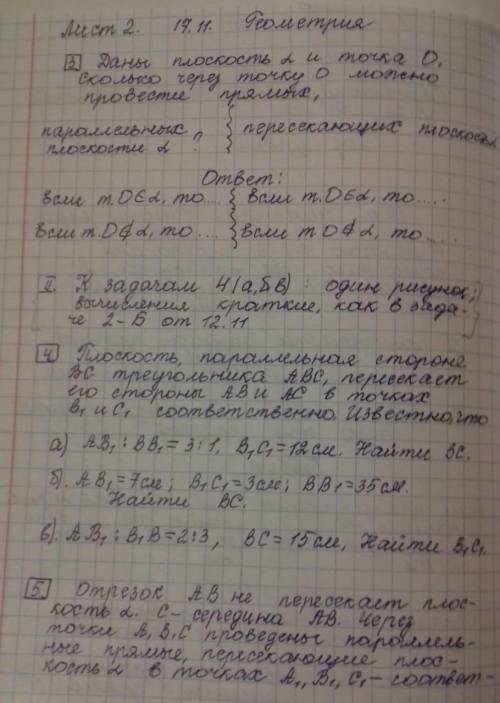 Лист 2. 17.11. Геометрия
3 Даны плоскость α и точка О,
сколько через точку О можно
провести прямых,
параллельных плоскости α ? пересекающих плоскость α
Ответ:
если т.О∈α, то... если т.О∈α, то....
если т.О∉α, то.... если т О∉α, то.....
II. К задачам 4(а,б,в) : один рисунок,
вычисления краткие, как в зада-
че 2-Б от 12.11
4 Плоскость, параллельная стороне
ВС треугольника АВС, пересекает
его стороны АВ и АС в точках
В₁ и С₁ соответственно. Известно, что
а) АВ₁ : ВВ₁ = 3 : 1, В₁С₁ = 12 см. Найти ВС.
б). АВ₁ = 7см; В₁С₁ = 3см; ВВ₁ = 35см.
Найти ВС.
в). АВ₁ : В₁В = 2:3, ВС = 15 см, Найти В₁С₁.
5 Отрезок АВ не пересекает плос-
кость α. С - середина АВ. Через
точки А, В, С проведены параллель-
ные прямые, пересекающие плос-
кость α в точках А₁, В₁, С₁ - соответ-